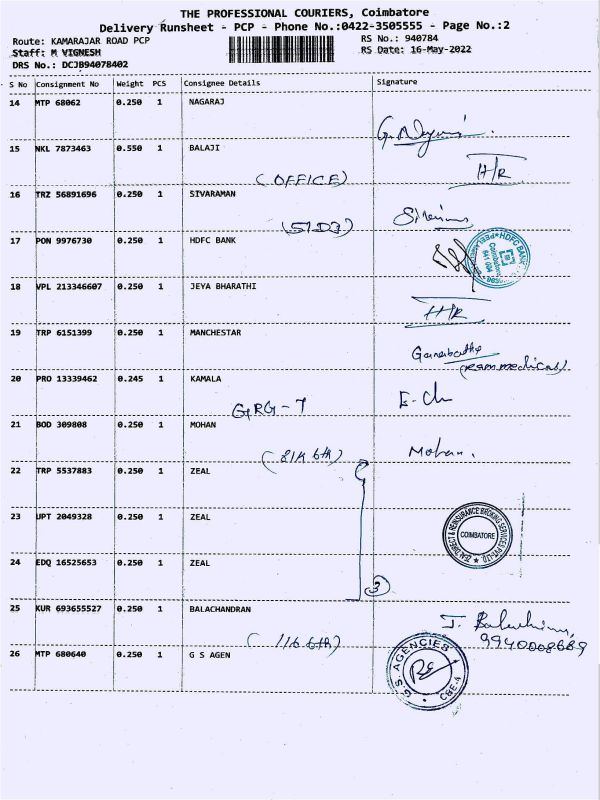 THE PROFESSIONAL COURIERS, Coimbatore
Delivery Runsheet - PCP - Phone No.:0422-3505555 - Page No.:2
Route: KAMARAJAR ROAD PCP RS No.: 940784
Staff: M VIGNESH RS Date: 16-May-2022
DRS No.: DCJB94078402
S No Consignment No Weight PCS Consignee Details Signature
14 MTP 68062 0.250 1 NAGARAJ
15 NKL 7873463 0.550 1 BALAJI
(OFFICE) H/R
16 TRZ 56891696 0.250 1 SIVARAMAN
17 PON 9976730 0.250 1 HDFC BANK
HDFC BANK
18 VPL 213346607 0.250 1 JEYA BHARATHI
H/R
19 TRP 6151399 0.250 1 MANCHESTAR
20 PRO 13339462 0.245 1 KAMALA
GRG-7
21 BOD 309808 0.250 1 MOHAN
Mohan.
22 TRP 5537883 0.250 1 ZEAL
23 UPT 2049328 0.250 1 ZEAL
ZEAL DIRECT & REINSURANCE BROKING SERVICES PVT. LTD.
COIMBATORE
24 EDQ 16525653 0.250 1 ZEAL
3
25 KUR 693655527 0.250 1 BALACHANDRAN
26 MTP 680640 0.250 1 G S AGEN
G.S. AGENCIES
CBE-4